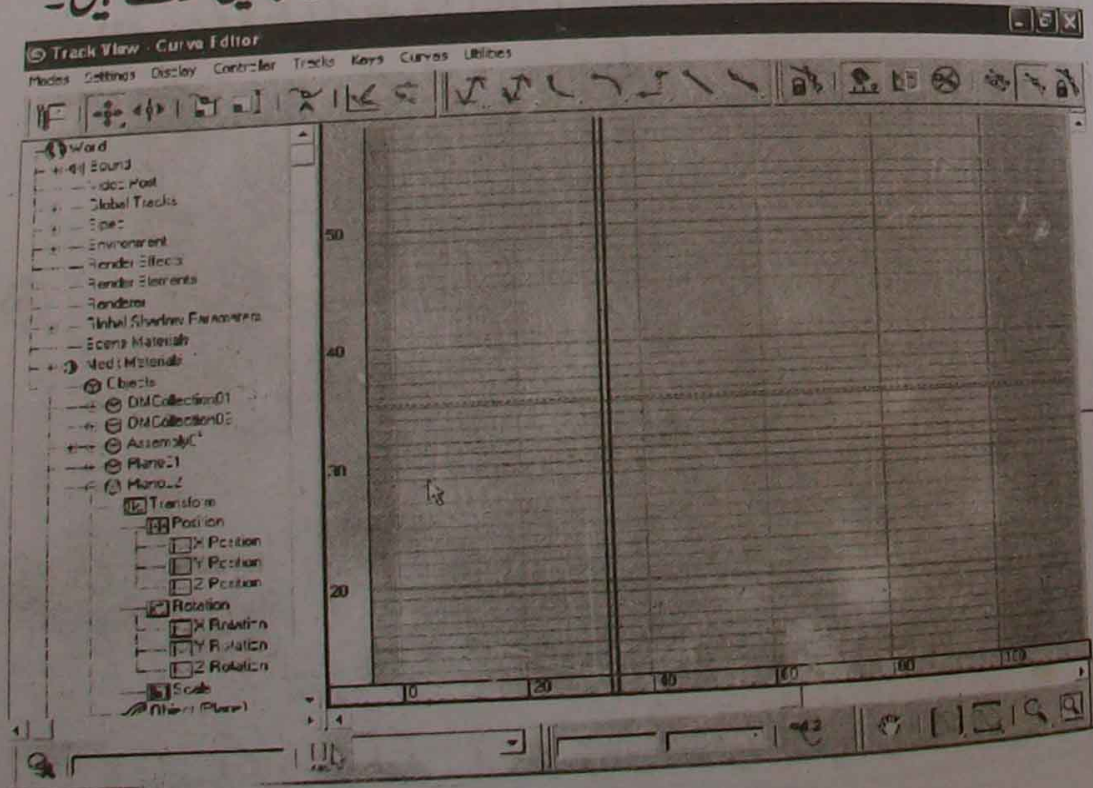 Track View - Curve Editor
Modes Settings Display Controller Tracks Keys Curves Utilities
World
Sound
Video Post
Global Tracks
Environment
Render Effects
Render Elements
Renderer
Global Shadow Parameters
Scene Materials
Medit Materials
Objects
DMCollection01
Assembly01
Plane01
Transform
Position
X Position
Y Position
Z Position
Rotation
X Rotation
Y Rotation
Z Rotation
Scale
Object (Plane)
50
40
30
20
0 20 40 60 80 100